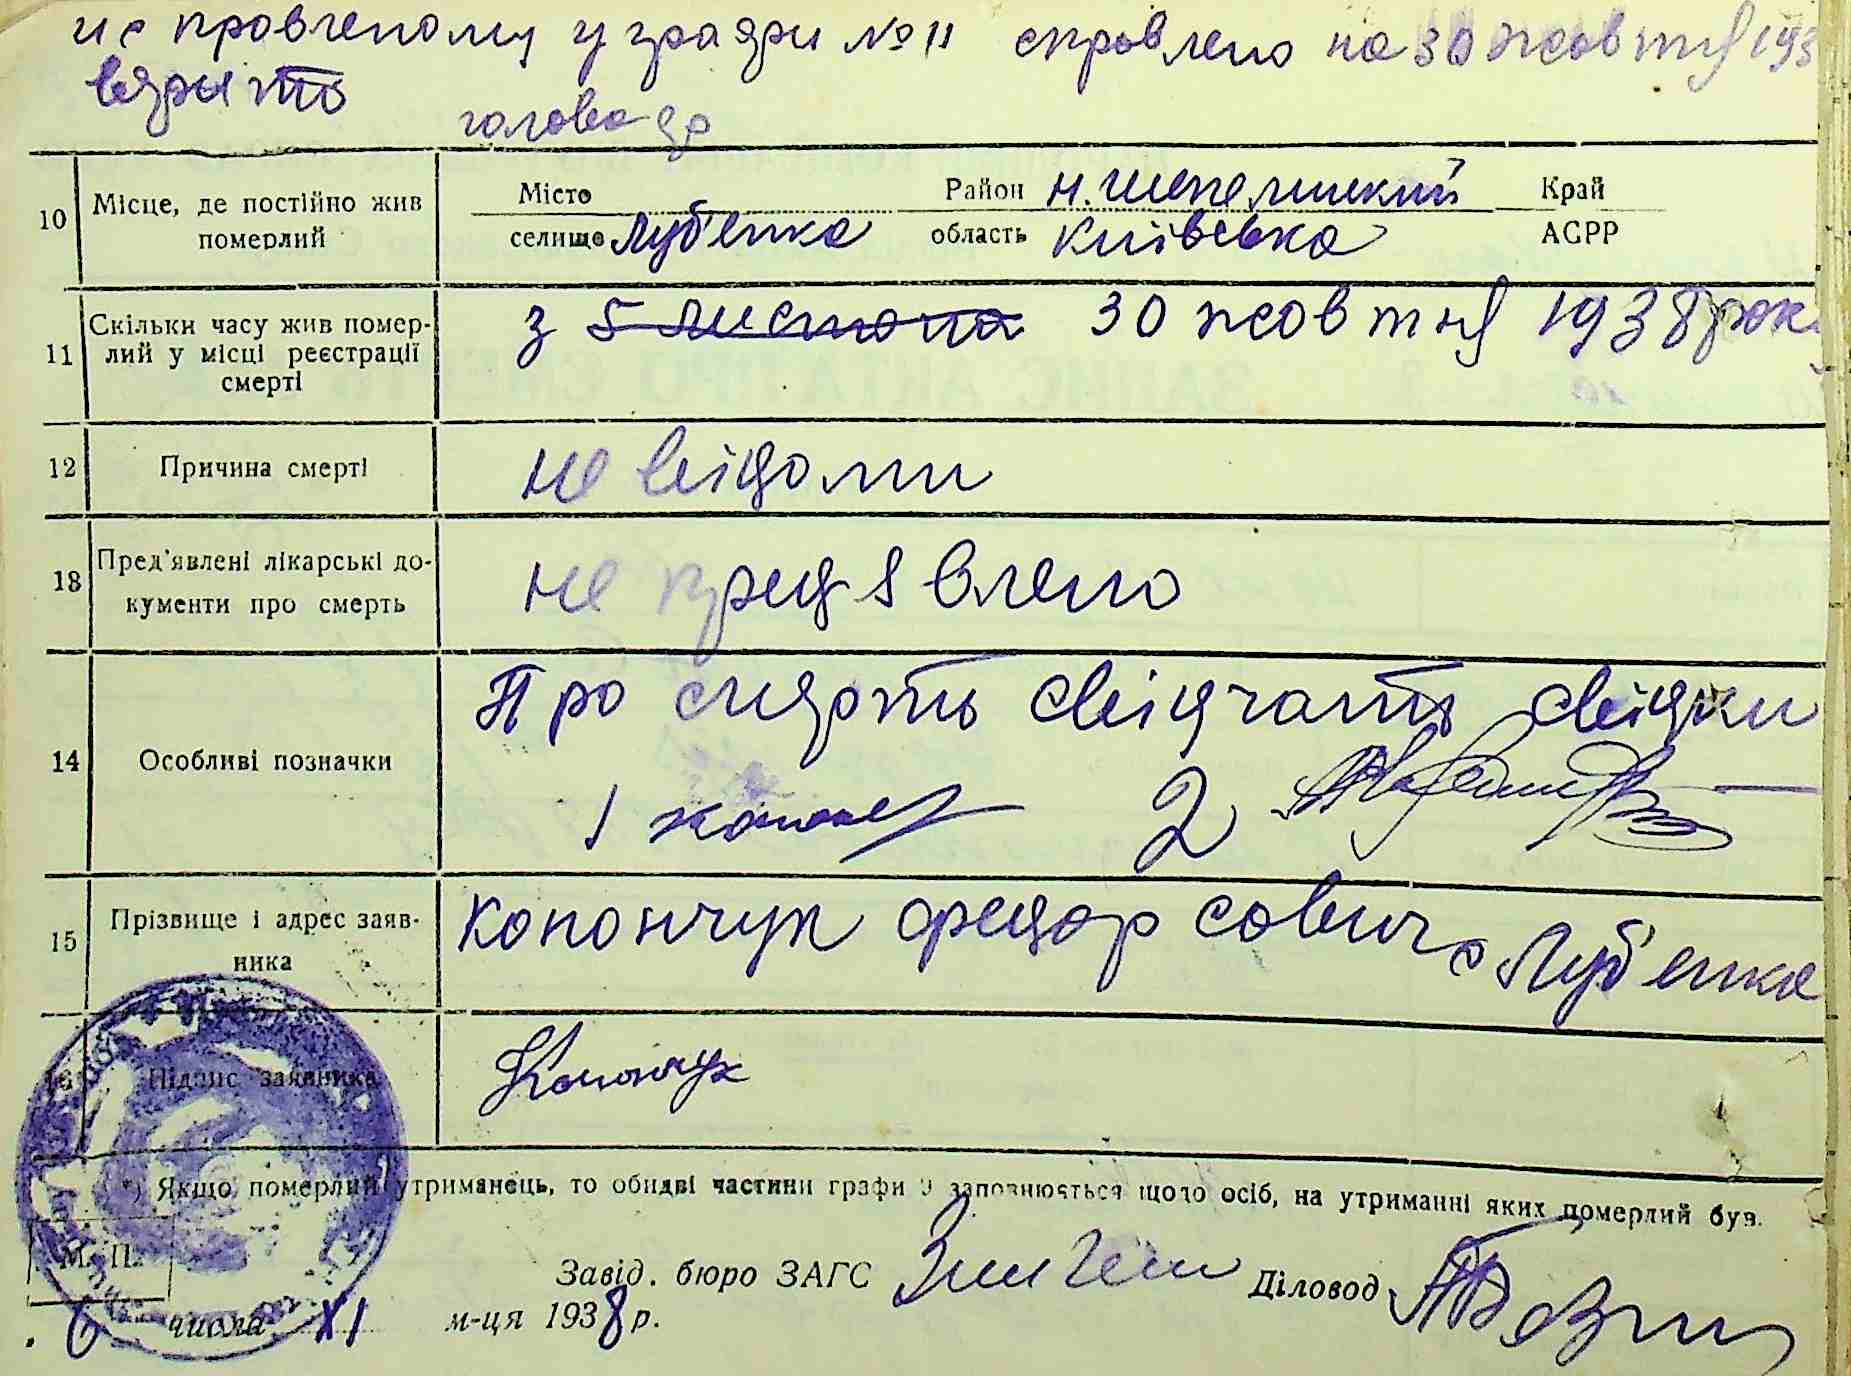 исправленому у графи № 11 справлено на 30 жовтня 193
вярить
голова
10 Місце, де постійно жив померлий
Місто Район н. шепелицкий Край
селище луб'енка область київська АСРР
11 Скільки часу жив померлий у місці реєстрації смерті
з 5 листопа 30 жовтня 1938 рок
12 Причина смерті не відоми
13 Пред'явлені лікарські документи про смерть не предявлено
14 Особливі позначки
Про смерть свідчать свідки
1 2
15 Прізвище і адрес заявника копончук федор сович с луб'енка
16 Підпис заявника
*) Якщо померлий утриманець, то обидві частини графи 9 заповнюється щодо осіб, на утриманні яких померлий був.
М. П.
Завід. бюро ЗАГС Діловод
6 числа XI м-ця 1938 р.